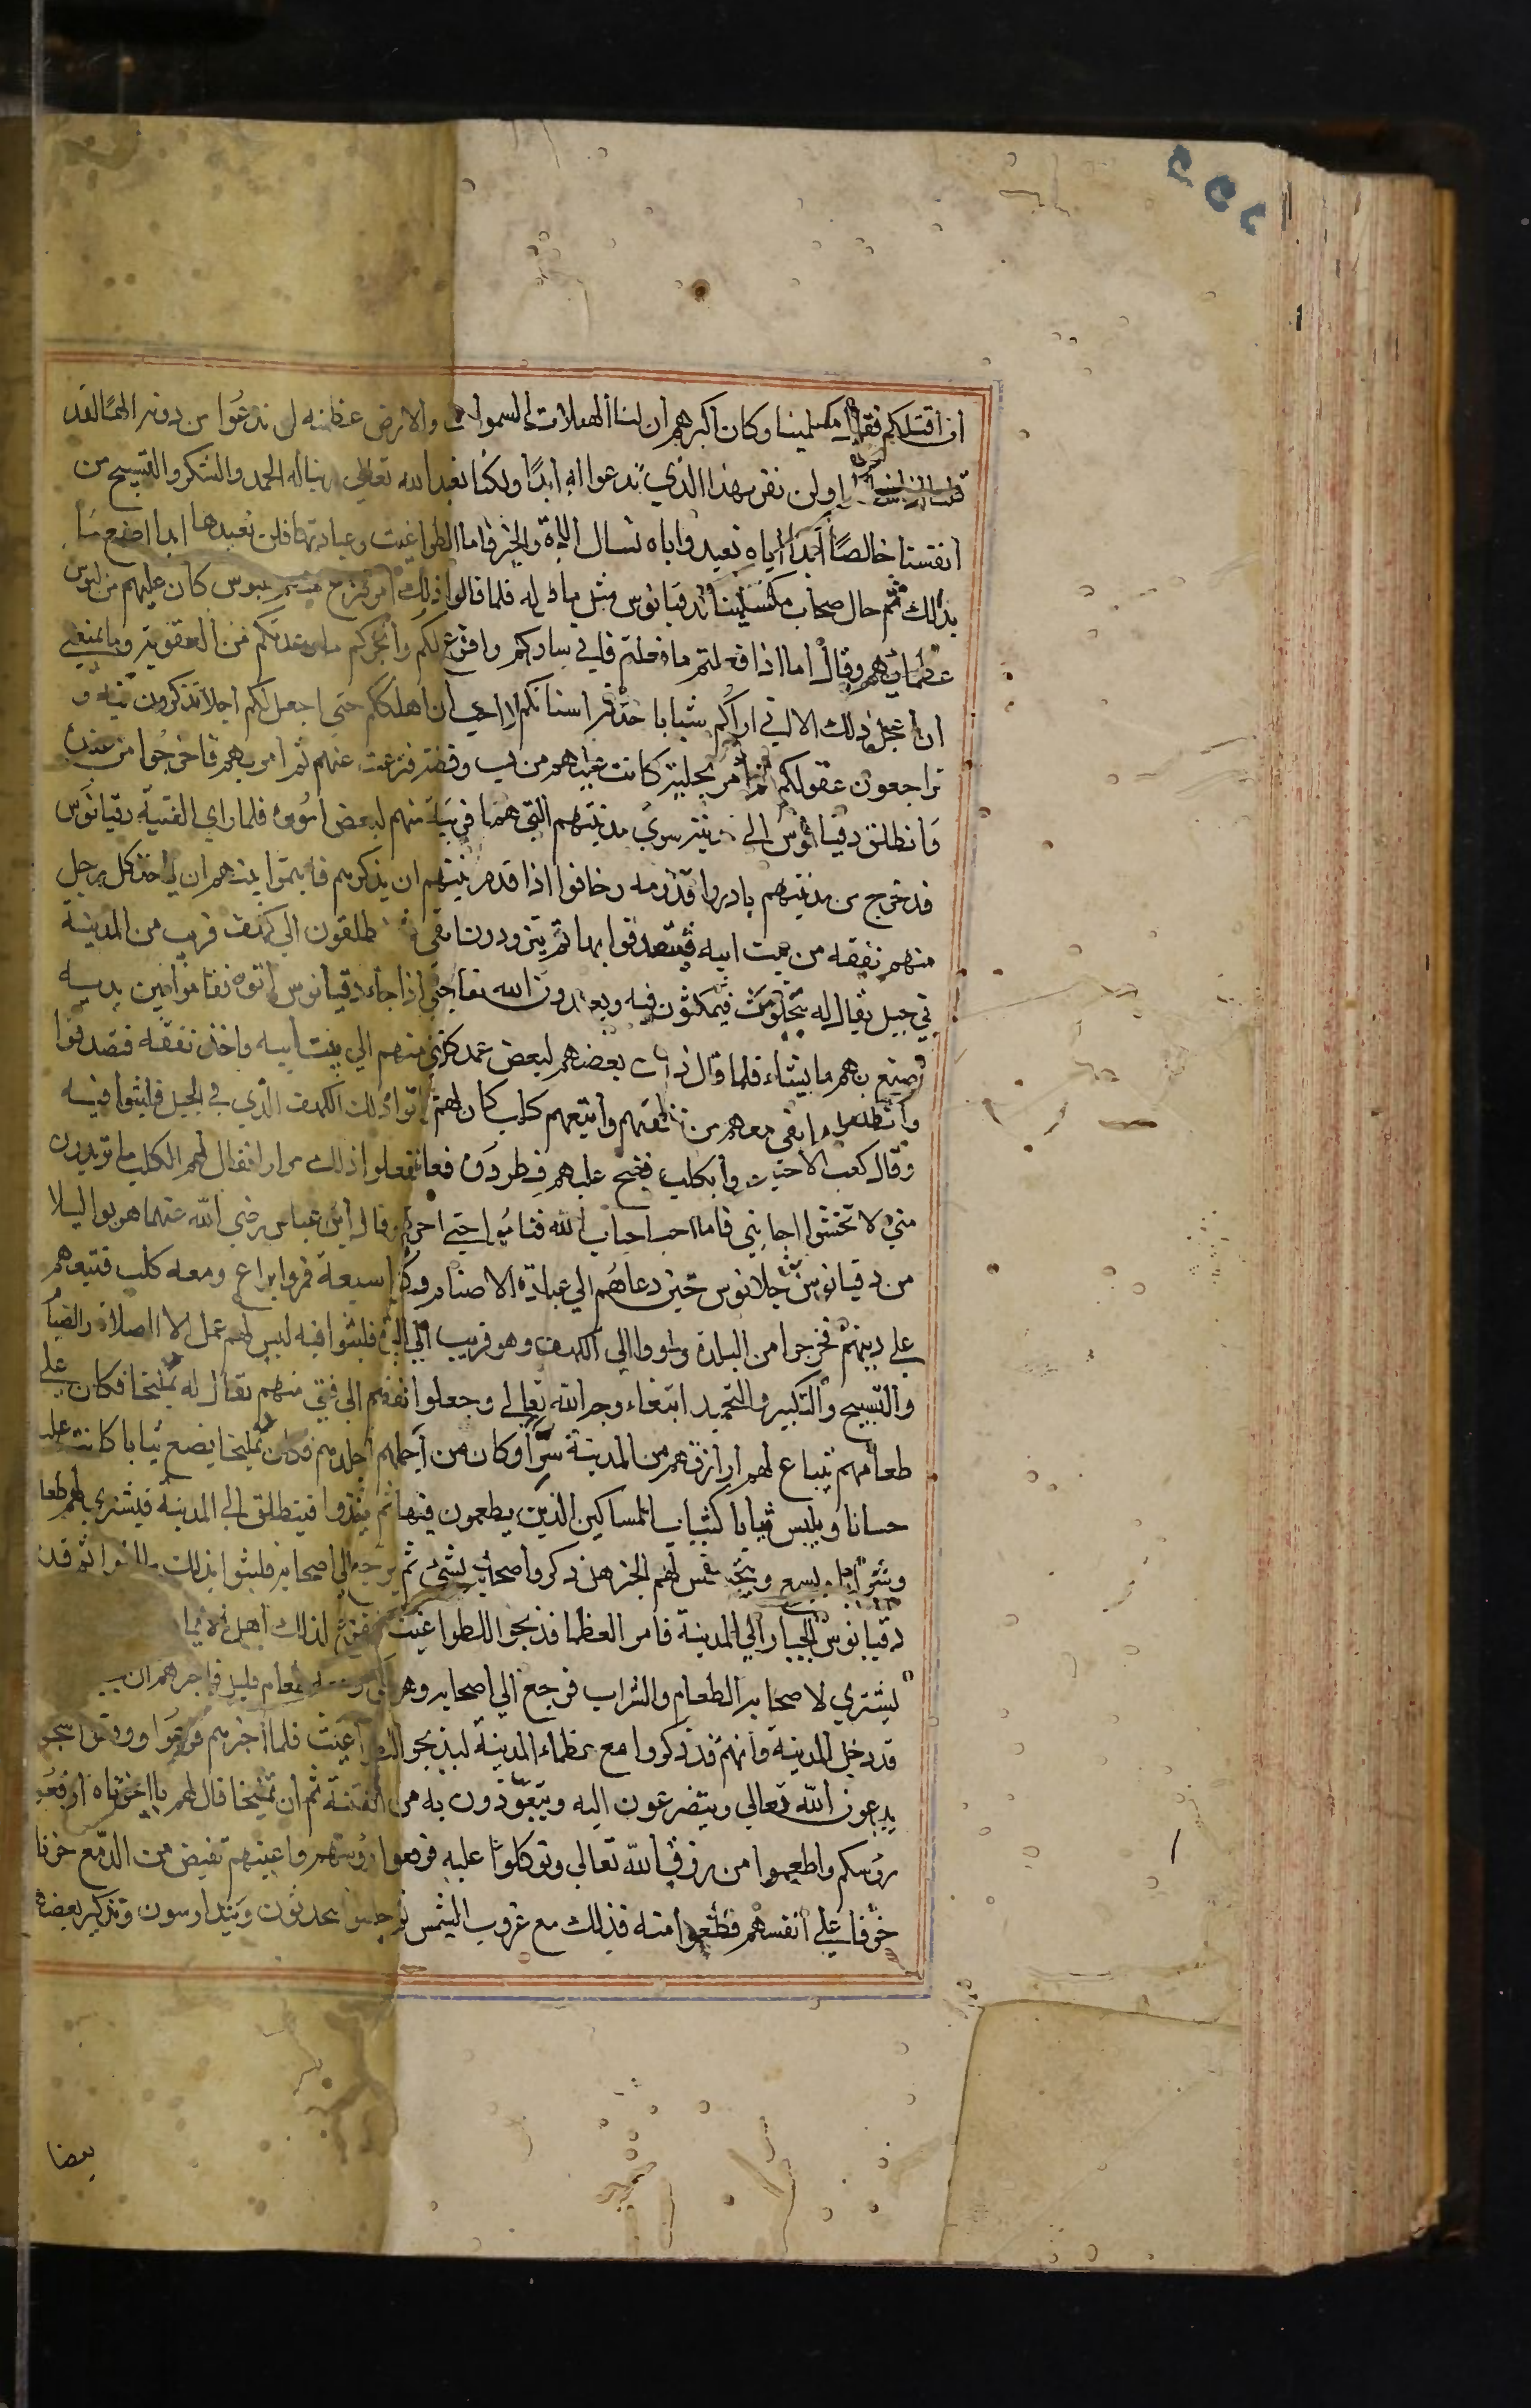 ٢٥٥
ان اقتلكم فقال مكسلمينا وكان اكبرهم ان لنا الها ملات السموات والارض عظمته لن ندعوا من دونه الها لقد
ولن نقر بهذا الذي تدعوا اليه ابدا ولكنا نعبد الله تعالى ربنا له الحمد والشكر والتسبيح من
انفسنا خالصا ابدا اياه نعبد واياه نسال النجاة والخير فاما الطواغيت وعبادتها فلن نعبدها ابدا اصنع بنا
بذلك ثم قال اصحاب مكسلمينا لدقيانوس مثل ما قال له فلما قالوا ذلك امر فنزع منهم لبوس كان عليهم من لبوس
عظمائهم وقال اما اذا فعلتم ما فعلتم فاني ساوخركم وافرغ لكم وانجزكم ما وعدتكم من العقوبة وما يمنعني
ان اعجل ذلك الا اني اراكم شبابا حديثة اسنانكم لا احب ان اهلككم حتى اجعل لكم اجلا تذكرون فيه و
تراجعون عقولكم ثم امر بحلية كانت عليهم من ذهب وفضة فنزعت عنهم ثم امر بهم فاخرجوا من عنده
وانطلق دقيانوس الى مدينة سوى مدينتهم التي هم بها قريبة منهم لبعض اموره فلما راى الفتية دقيانوس
قد خرج من مدينتهم بادروا قدومه وخافوا اذا قدم مدينتهم ان يذكرهم فأتمروا بينهم ان ياخذ كل رجل
منهم نفقه من بيت ابيه فيتصدقوا بها ثم يتزودون بما بقي ثم ينطلقون الى كهف قريب من المدينة
في جبل يقال له بنجلوس فيمكثون فيه ويعبدون الله تعالى حتى اذا جاء دقيانوس اتوه فقاموا بين يديه
فيصنع بهم ما يشاء فلما قال ذلك بعضهم لبعض عمد كل فتى منهم الى بيت ابيه واخذ نفقة فتصدقوا
وانطلقوا بما بقي معهم من نفقتهم واتبعهم كلب كان لهم حتى اتوا ذلك الكهف الذي في الجبل فلبثوا فيه
وقال كعب الاحبار مروا بكلب فنبح عليهم فطردوه فعاد ففعلوا ذلك مرارا فقال لهم الكلب ما تريدون
مني لا تخشوا جانبي فانا احب احباب الله فناموا حتى احرسكم وقال ابن عباس رضي الله عنهما هربوا ليلا
من دقيانوس بن جلانوس حين دعاهم الى عبادة الاصنام وكانوا سبعة فمروا براع ومعه كلب فتبعهم
على دينهم فخرجوا من البلدة واووا الى الكهف وهو قريب من البلد فلبثوا فيه ليس لهم عمل الا الصلاة والصيام
والتسبيح والتكبير والتحميد ابتغاء وجه الله تعالى وجعلوا نفقتهم الى فتى منهم يقال له تمليخا فكان على
طعامهم يبتاع لهم ارزاقهم من المدينة سرا وكان من اجملهم واجلدهم فكان تمليخا يضع ثيابا كانت عليه
حسانا ويلبس ثيابا كثياب المساكين الذين يطعمون فيها ثم ينطلق الى المدينة فيشتري لهم طعاما
وشرابا ويتسمع ويتجسس لهم الخبر هل ذكر واصحابه بشئ ثم يرجع الى اصحابه فلبثوا بذلك ما لبثوا ثم قدم
دقيانوس الجبار الى المدينة فامر العظما فذبحوا للطواغيت ففزع لذلك اهل الايمان
ليشتري لاصحابه الطعام والشراب فرجع الى اصحابه وهو يبكي ومعه طعام قليل فاخبرهم ان الجبار
قد دخل المدينة وانهم قد ذكروا مع عظماء المدينة ليذبحوا للطواغيت فلما اخبرهم فزعوا ووقعوا سجودا
يدعون الله تعالى ويتضرعون اليه ويتعوذون به من الفتنة ثم ان تمليخا قال لهم يا اخوتاه ارفعوا
رؤسكم واطعموا من رزق الله تعالى وتوكلوا عليه فرفعوا رؤسهم واعينهم تفيض من الدمع حزنا
خوفا على انفسهم فطعموا منه فذلك مع غروب الشمس ثم جلسوا يتحدثون ويتدارسون وتذكير بعضهم
بعضا